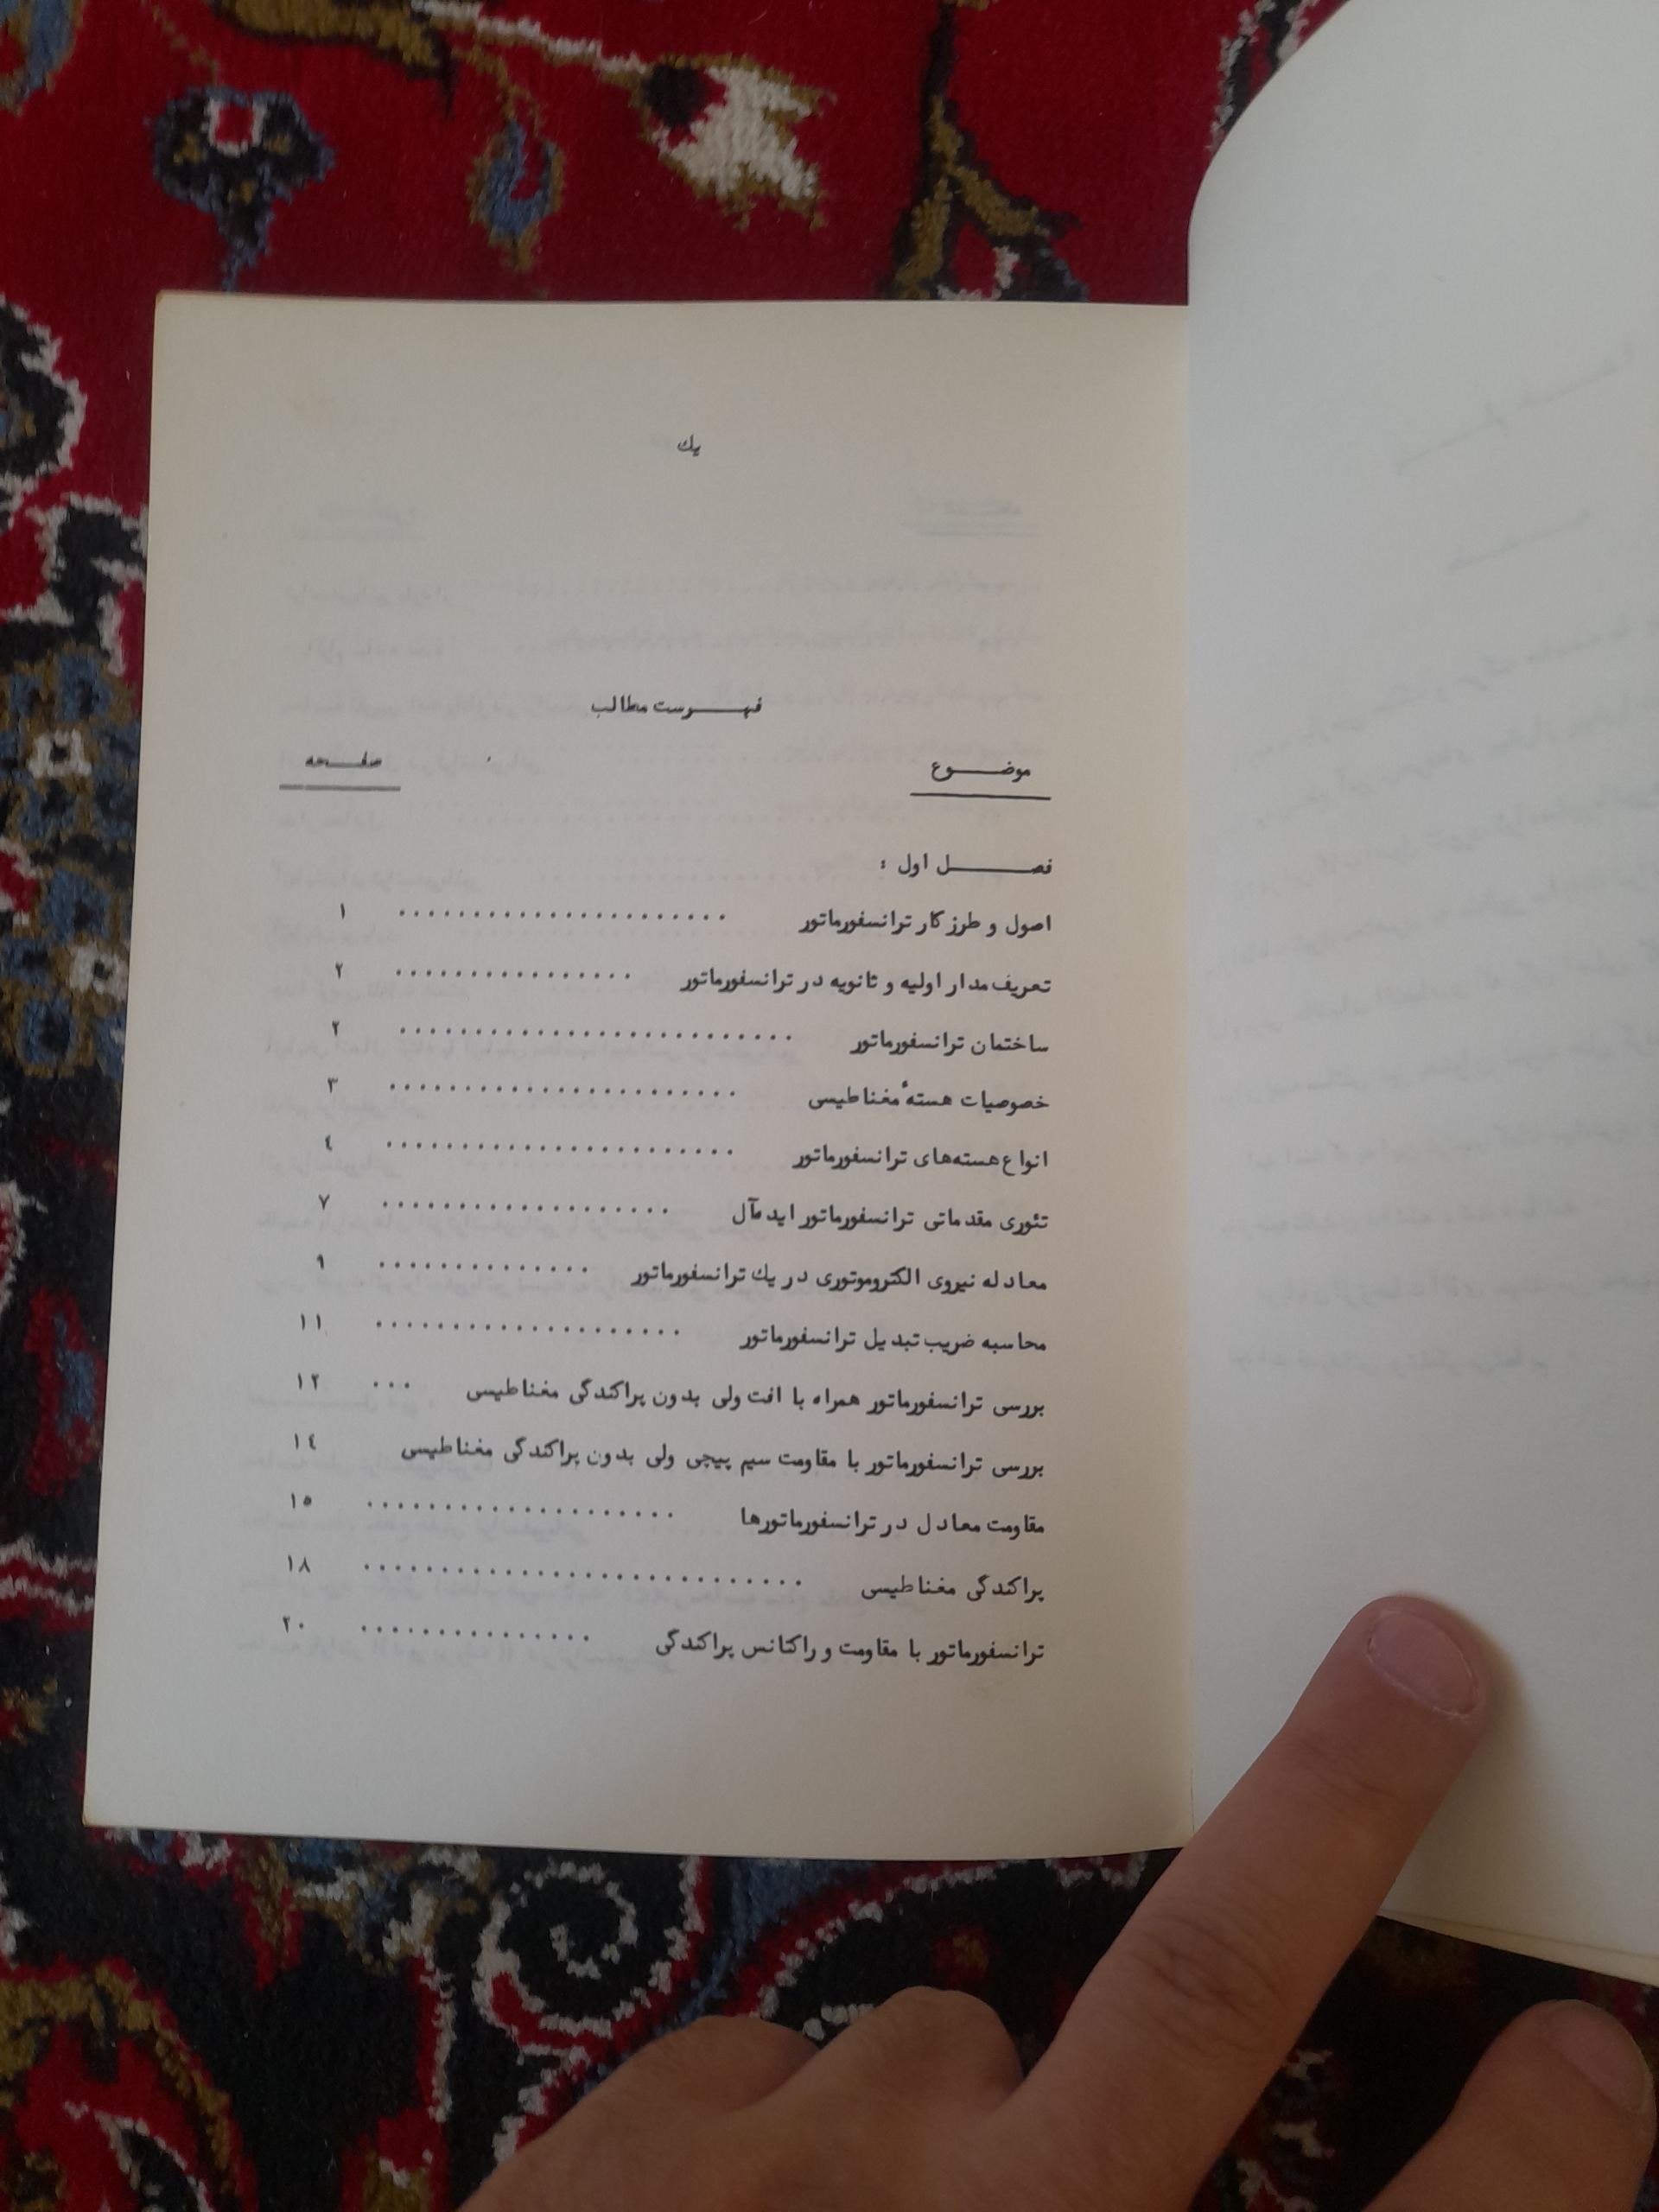 یك
فهرست مطالب
موضوع صفحه
فصل اول :
اصول و طرز کار ترانسفورماتور ...................... ۱
تعریف مدار اولیه و ثانویه در ترانسفورماتور ................ ۲
ساختمان ترانسفورماتور .......................... ۲
خصوصیات هستهٔ مغناطیسی ....................... ۳
انواع هسته‌های ترانسفورماتور ....................... ٤
تئوری مقدماتی ترانسفورماتور ایده‌آل ................... ۷
معادله نیروی الکتروموتوری در یك ترانسفورماتور .............. ۹
محاسبه ضریب تبدیل ترانسفورماتور .................... ۱۱
بررسی ترانسفورماتور همراه با افت ولی بدون پراکندگی مغناطیسی ... ۱۲
بررسی ترانسفورماتور با مقاومت سیم پیچی ولی بدون پراکندگی مغناطیسی ۱٤
مقاومت معادل در ترانسفورماتورها .................... ۱۵
پراکندگی مغناطیسی ............................ ۱۸
ترانسفورماتور با مقاومت و راکتانس پراکندگی ............... ۲۰